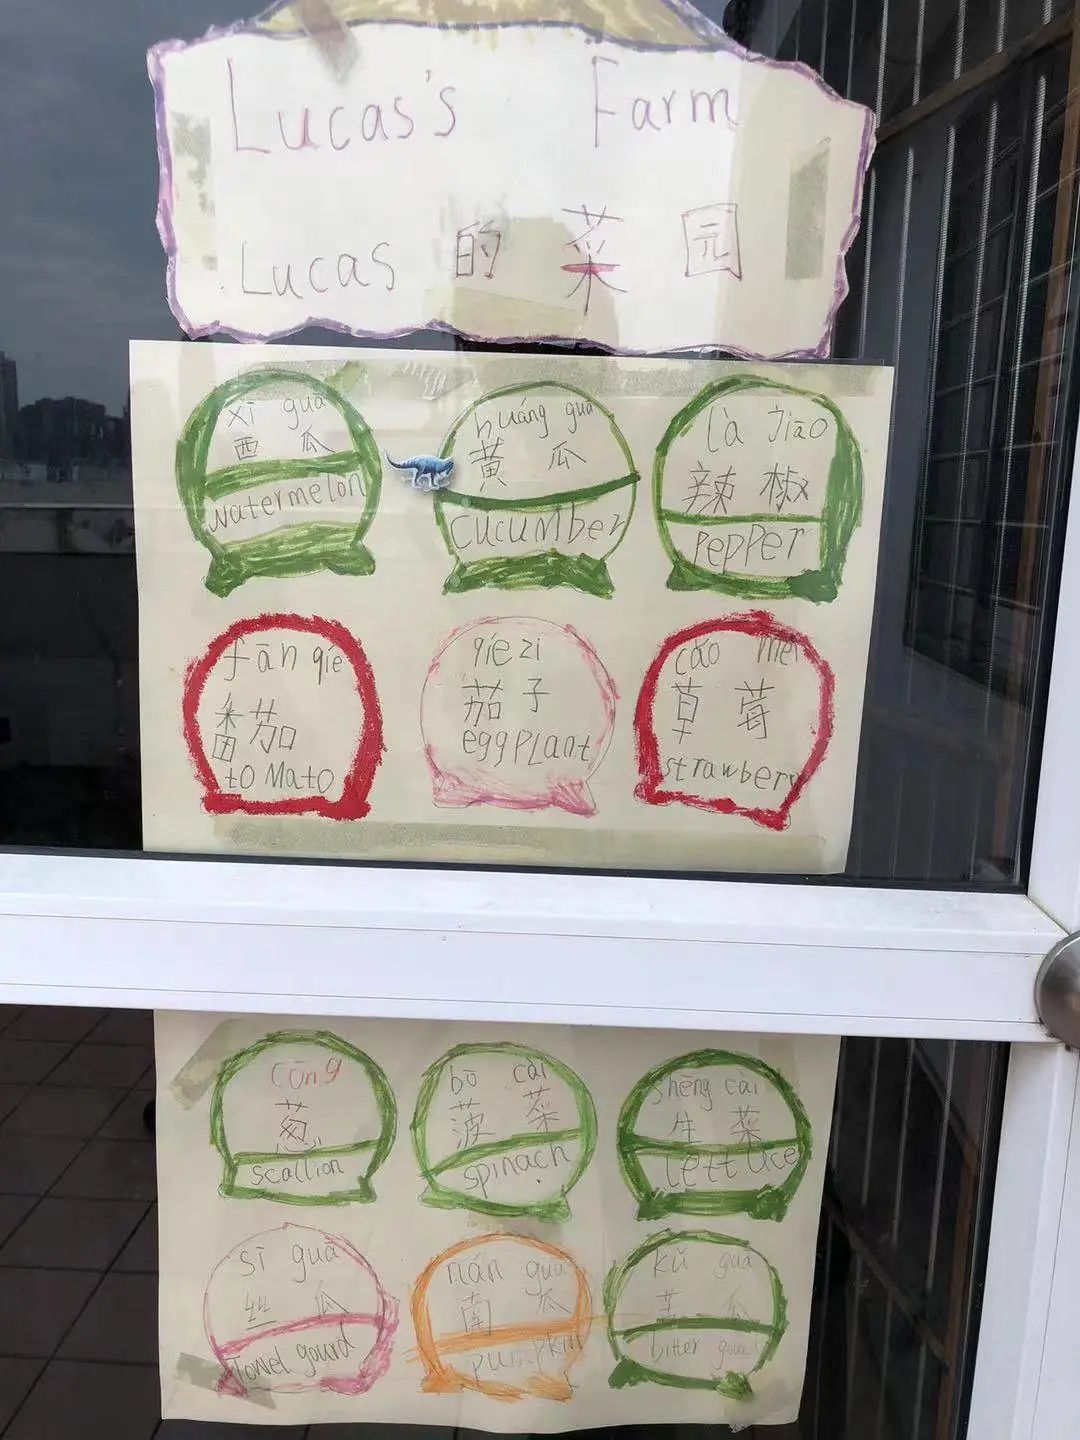 Lucas's Farm
Lucas 的 菜 园
xī guā
西 瓜
watermelon
huáng guā
黄 瓜
cucumber
là Jiāo
辣 椒
pepper
fān qié
番茄
toMato
qié zi
茄子
eggplant
cǎo méi
草 莓
strawberry
cōng
葱
scallion
bō cài
菠 菜
spinach
shēng cài
生 菜
lettuce
sī guā
丝 瓜
Towel gourd
nán guā
南 瓜
pumpkin
kǔ guā
苦 瓜
bitter gourd